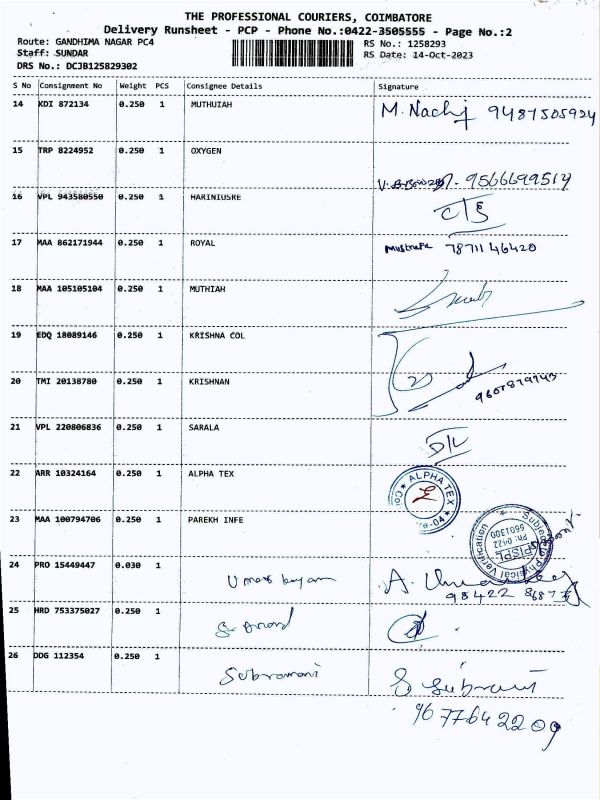 THE PROFESSIONAL COURIERS, COIMBATORE
Delivery Runsheet - PCP - Phone No.:0422-3505555 - Page No.:2
Route: GANDHIMA NAGAR PC4
Staff: SUNDAR
DRS No.: DCJB125829302
RS No.: 1258293
RS Date: 14-Oct-2023
S No Consignment No Weight PCS Consignee Details Signature
14 KDI 872134 0.250 1 MUTHUIAH M. Nachi 9487505924
15 TRP 8224952 0.250 1 OXYGEN 9566699514
16 VPL 943580550 0.250 1 HARINIUSRE C/S
17 MAA 862171944 0.250 1 ROYAL Mustafa 7871146420
18 MAA 105105104 0.250 1 MUTHIAH
19 EDQ 18089146 0.250 1 KRISHNA COL
20 TMI 20138780 0.250 1 KRISHNAN
21 VPL 220806836 0.250 1 SARALA D/L
22 ARR 10324164 0.250 1 ALPHA TEX ALPHA TEX
23 MAA 100794706 0.250 1 PAREKH INFE PISPL Ph: 0422 6601300 Subject to Physical Verification
24 PRO 15449447 0.030 1
98422 86877
25 HRD 753375027 0.250 1 S. Anand
26 DDG 112354 0.250 1 Subramani S Subramani
9677642209